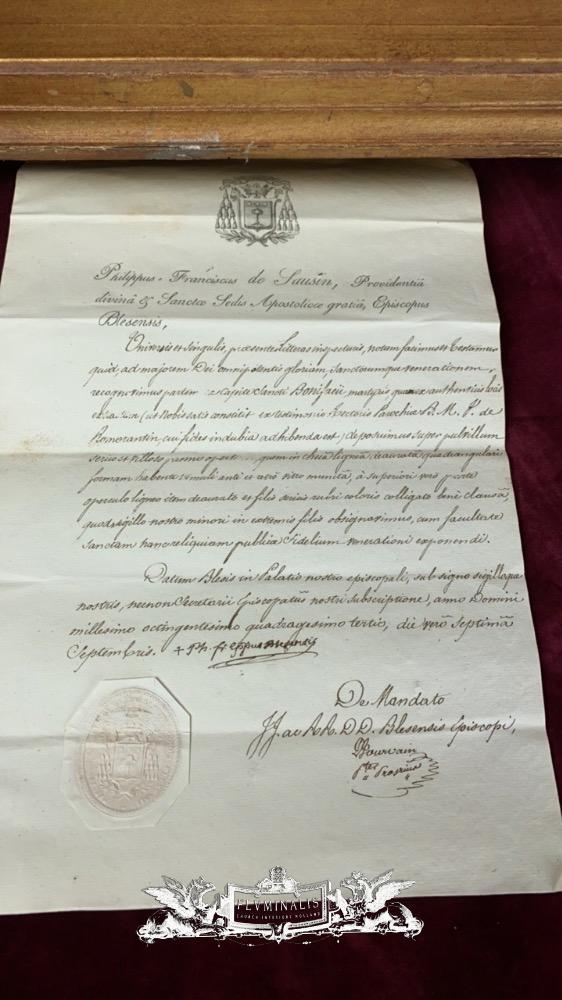 Philippus-Franciscus de Sausin, Providentiâ
divinâ & Sanctæ Sedis Apostolicæ gratiâ, Episcopus
Blesensis,
Universis et singulis, præsentes Litteras inspecturis, notum facimus et testamur
quod, ad majorem Dei omnipotentis gloriam, Sanctorumque venerationem,
recognovimus partem e Capite Sancti Bonifacii martyris quam ex authenticis locis
extractam (ut Nobis satis constitit ex testimonio Rectoris Parochiæ B. M. V. de
Romorantin, cui fides indubia adhibenda est,) deposuimus super pulvillum
serico et villoso quem in theca lignea, deaurata, quadrangularis
formam habente vitro munitâ, à superiori vero parte
operculo ligneo item deaurato et filis sericis rubri coloris colligatâ bene clausâ,
quod sigillo nostro minori in extremis filis obsignavimus, cum facultate
Sanctam hanc reliquiam publicæ Fidelium venerationi exponendi.
Datum Blesis in Palatio nostro episcopali, sub signo sigilloque
nostris, necnon Secretarii Episcopatûs nostri subscriptione, anno Domini
millesimo octingentesimo quadragesimo tertio, die vero Septimâ
Septembris. + Ph. fr. Episcopus Blesensis
De Mandato
JJ. ac RR. DD. Blesensis Episcopi,
FLVMINALIS
CHURCH INTERIORS HOLLAND